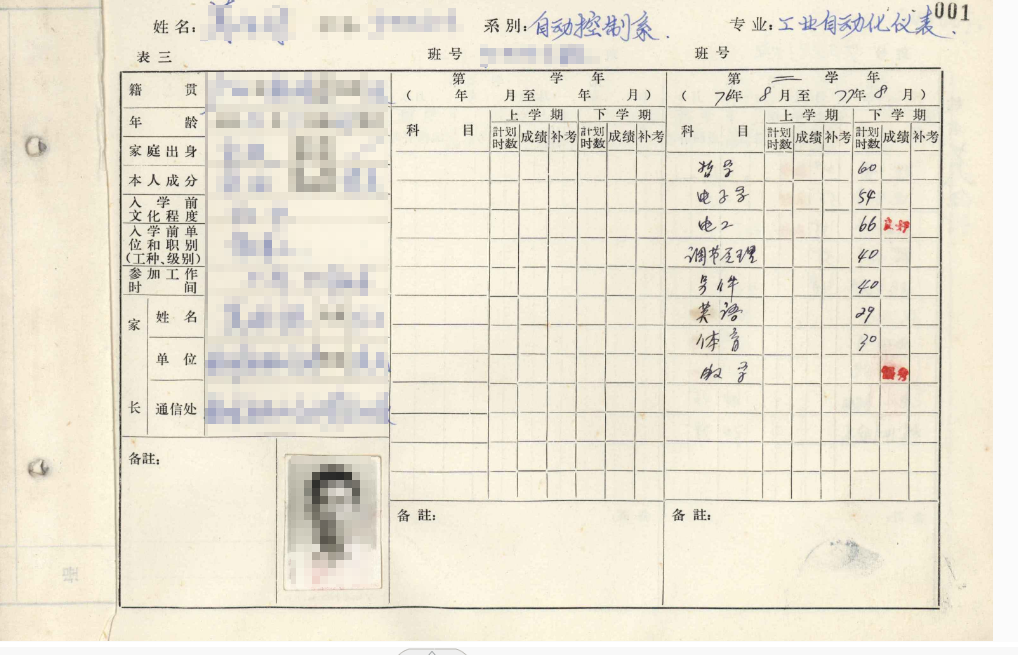 001
姓名: 系別: 自动控制系. 专业: 工业自动化仪表.
表三 班号 班号
籍贯
年龄
家庭出身
本人成分
入学前文化程度
入学前单位和职别(工种、级别)
参加工作时间
家长
姓名
单位
通信处
备註:
第 学年
( 年 月至 年 月)
科目 上学期 下学期
計划时数 成绩 补考 計划时数 成绩 补考
备註:
第二学年
(76年8月至77年8月)
科目 上学期 下学期
計划时数 成绩 补考 計划时数 成绩 补考
哲学 60
电子学 54
电工 66 良好
调节原理 40
40
英语 29
体育 30
优秀
备註: